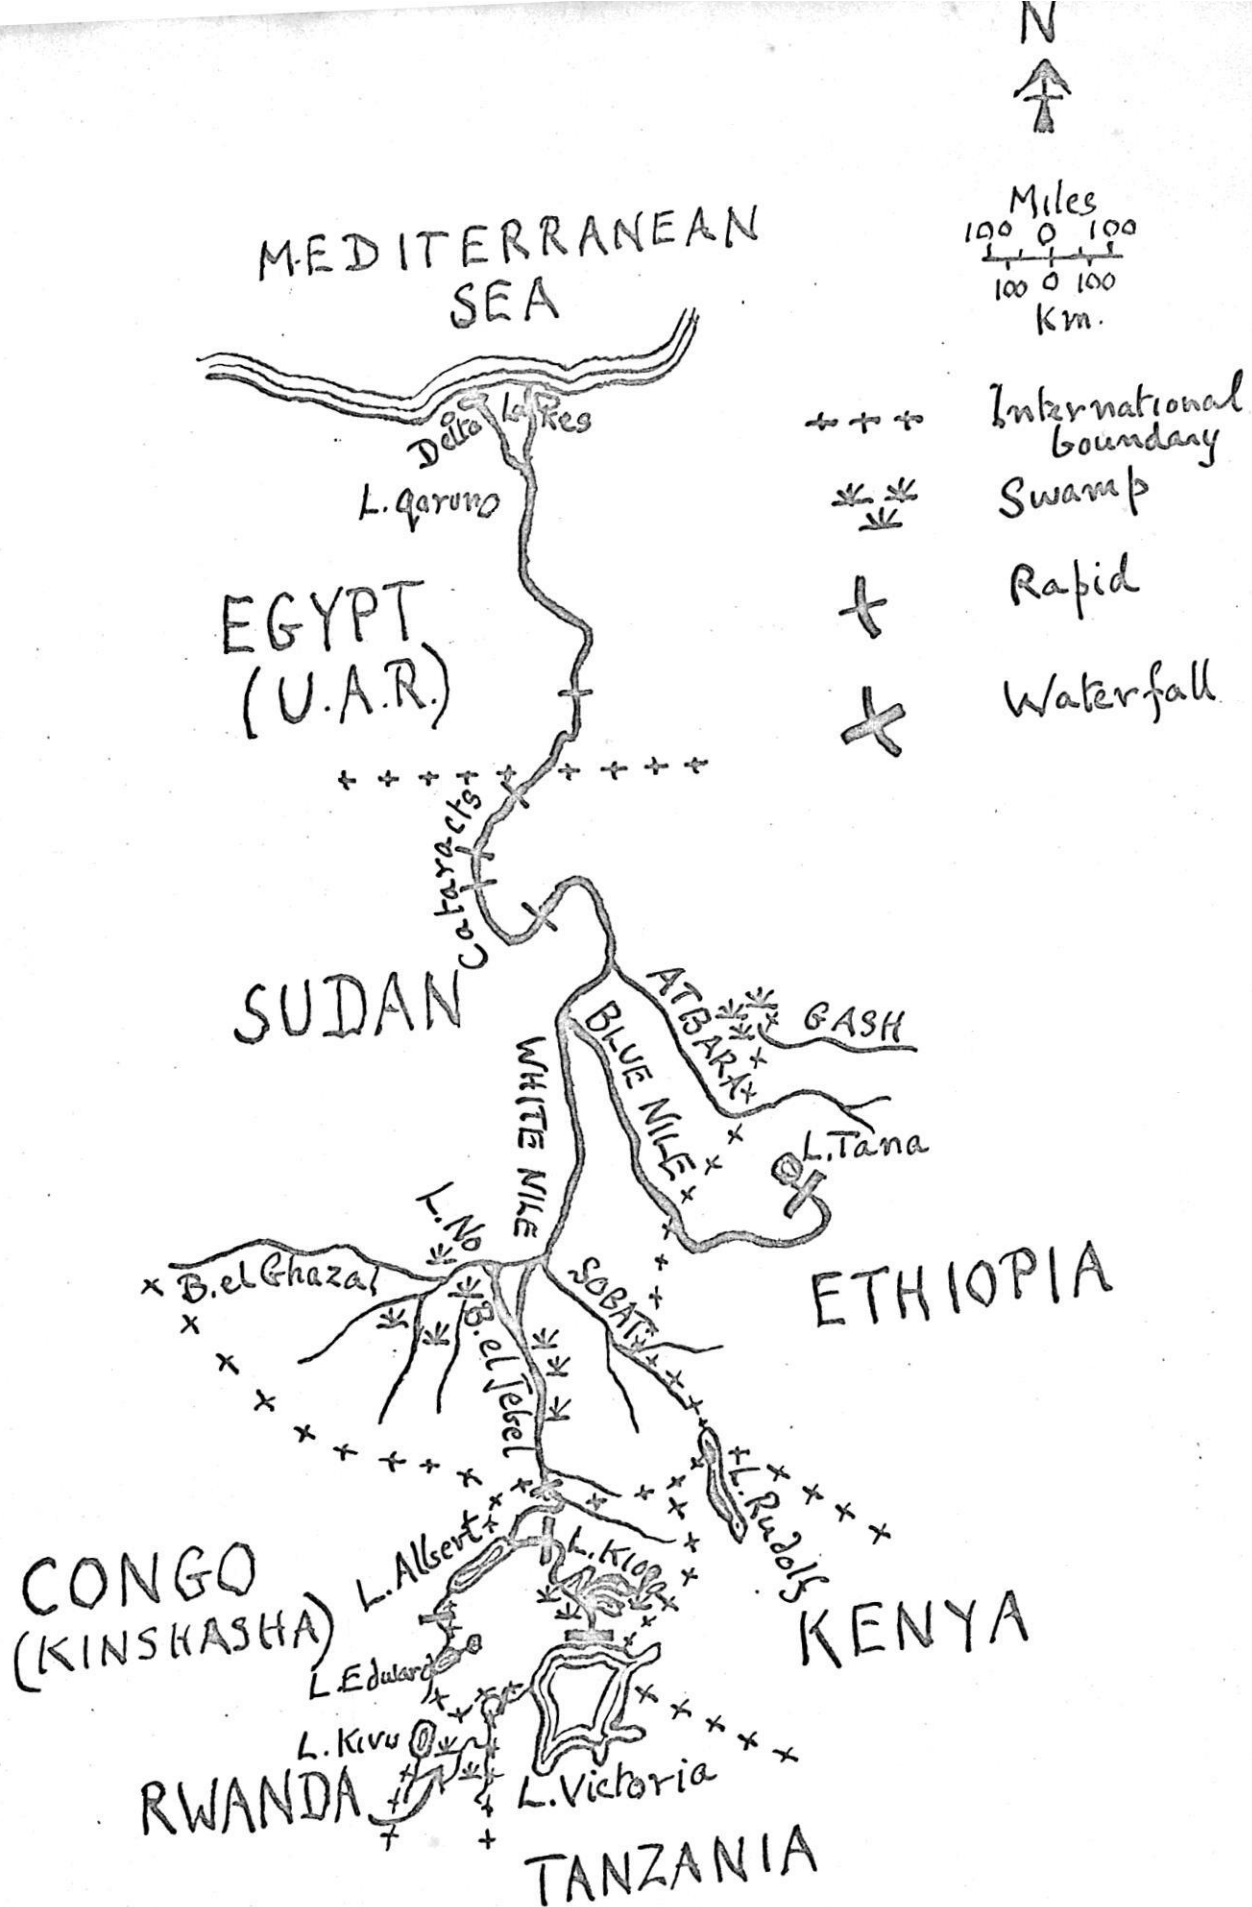 N
Miles
100 0 100
100 0 100
Km.
MEDITERRANEAN
SEA
International
boundary
Swamp
Rapid
Waterfall
Delta Lakes
L. Qarun
EGYPT
(U.A.R.)
Cataracts
SUDAN
ATBARA
GASH
BLUE NILE
WHITE NILE
L. Tana
L. No
B. el Ghazal
SOBAT
ETHIOPIA
B. el Jebel
L. Rudolf
L. Albert
L. Kioga
CONGO
(KINSHASHA)
KENYA
L. Edward
L. Kivu
RWANDA
L. Victoria
TANZANIA